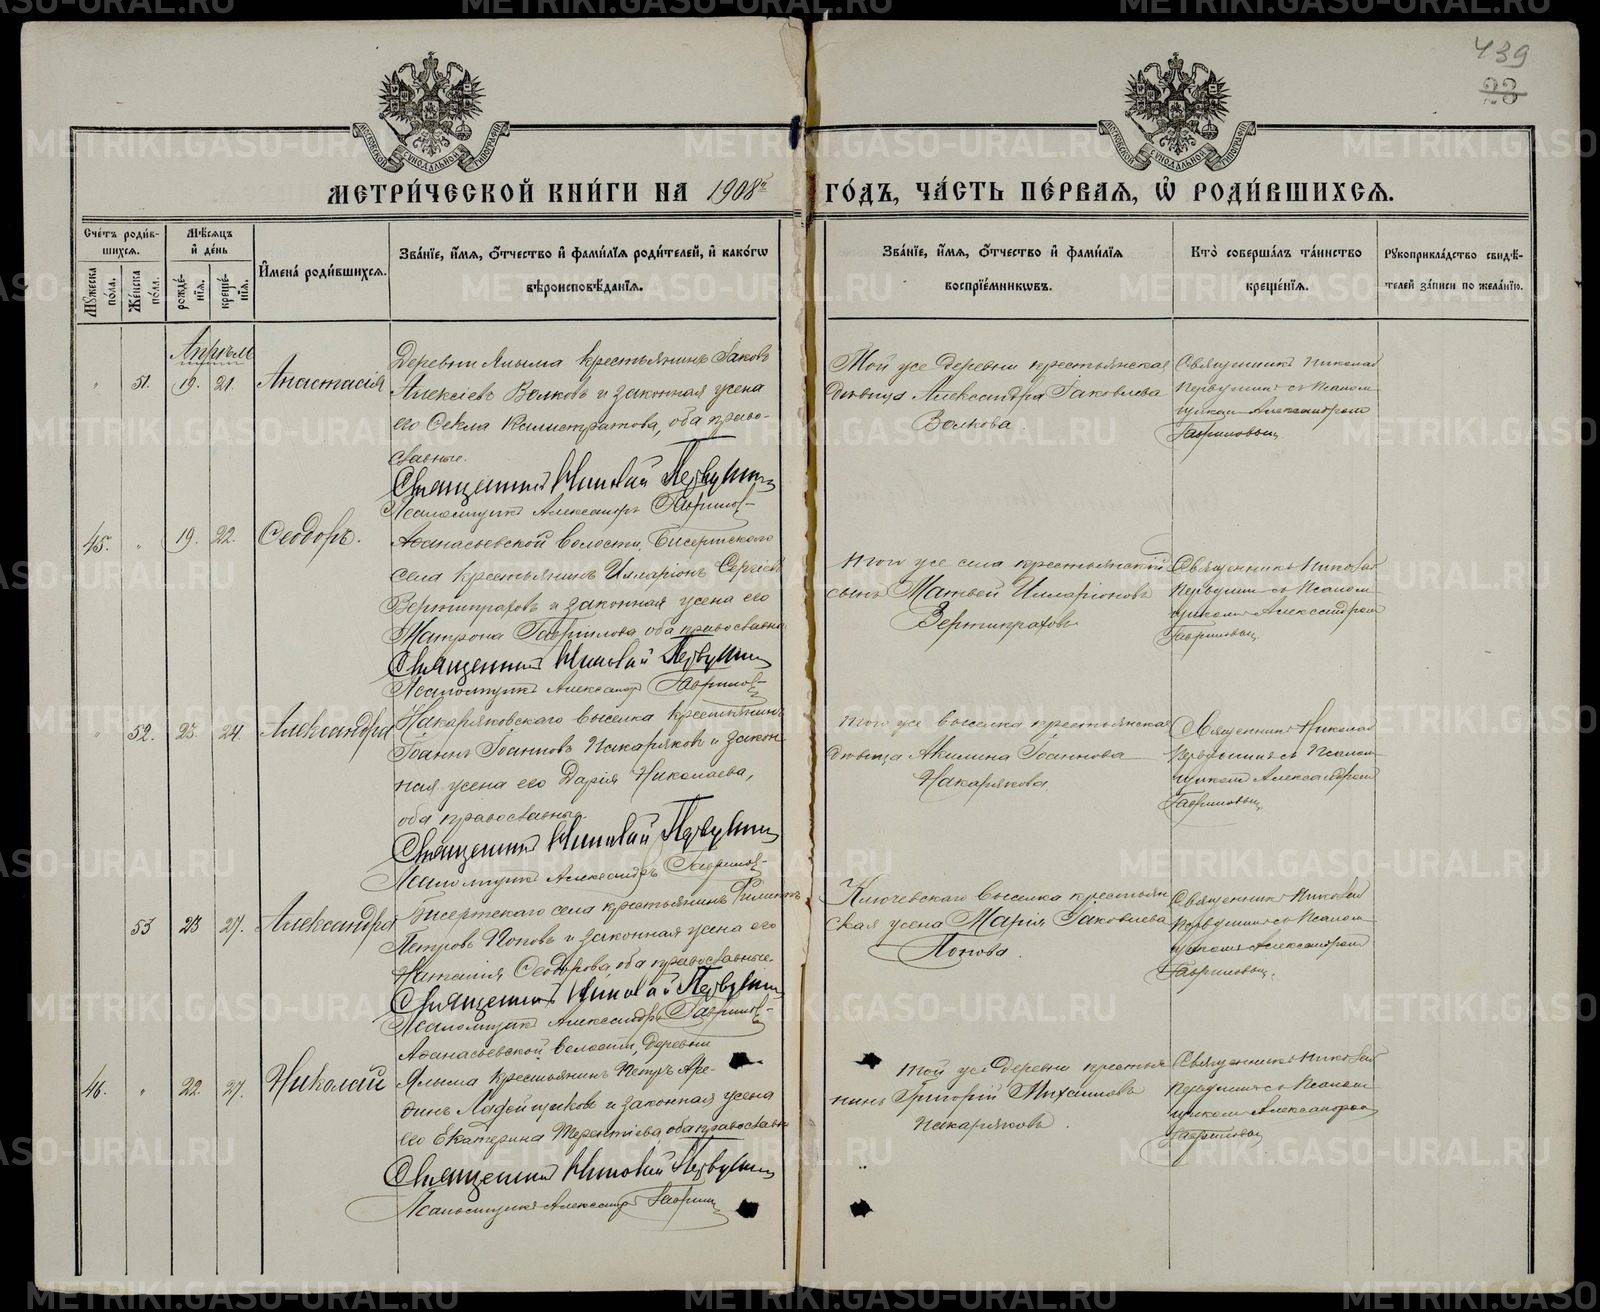 439
23
МОСКОВСКОЙ СѴНОДАЛЬНОЙ ТИПОГРАФІИ
МОСКОВСКОЙ СѴНОДАЛЬНОЙ ТИПОГРАФІИ
МЕТРИ́ЧЕСКОЙ КНИ́ГИ НА 1908й ГО́ДЪ, ЧА́СТЬ ПЕ́РВАЯ, Ѽ РОДИ́ВШИХСЯ.
Сче́тъ роди́в-
шихся.
Мꙋ́жеска пола.
Же́нска по́ла.
Мѣ́сяцъ
и҆ де́нь
рожде́-
нїя.
креще́-
нїя.
И҆мена̀ роди́вшихся.
Зва́нїе, и҆́мя, ѻ҆́тчество и҆ фами́лїя роди́телей, и҆ како́гѡ
вѣроисповѣ́данїя.
Зва́нїе, и҆́мя, ѻ҆́тчество и҆ фами́лїя
воспрїе́мникѡвъ.
Кто̀ соверша́лъ та́инство
креще́нїя.
Рꙋкоприкла́дство свидѣ́-
телей за́писи по жела́нїю.
Апрѣль
" 51. 19. 21. Анастасія
Деревни Алыма крестьянинъ Іаковъ
Алексіевъ Волковъ и законная жена
его Ѳекла Каллистратова, оба право-
славные.
Священникъ Николай Первушинъ
Псаломщикъ Александръ Гавриловъ
Той же деревни крестьянская
дѣвица Александра Іаковлева
Волкова.
Священникъ Николай
Первушинъ съ Псалом-
щикомъ Александромъ
Гавриловымъ
45. " 19. 22. Ѳеодоръ.
Аѳанасьевской волости, Бисертского
села крестьянинъ Илларіонъ Сергіевъ
Вертипраховъ и законная жена его
Матрона Гавріилова, оба православные
Священникъ Николай Первушинъ
Псаломщикъ Александръ Гавриловъ
Того же села крестьянскій
сынъ Матвей Илларіоновъ
Вертипраховъ
Священникъ Николай
Первушинъ съ Псалом-
щикомъ Александромъ
Гавриловымъ
" 52. 23. 24. Александра
Накаряковскаго выселка крестьянинъ
Іоаннъ Іоанновъ Накаряковъ и закон-
ная жена его Дарія Николаева,
оба православные.
Священникъ Николай Первушинъ
Псаломщикъ Александръ Гавриловъ
Того же выселка крестьянская
дѣвица Акилина Іоаннова
Накарякова.
Священникъ Николай
Первушинъ съ Псалом-
щикомъ Александромъ
Гавриловымъ
53 23 27. Александра
Бисертскаго села крестьянинъ Филиппъ
Петровъ Поповъ и законная жена его
Наталія Ѳеодорова, оба православные.
Священникъ Николай Первушинъ
Псаломщикъ Александръ Гавриловъ
Ключевскаго выселка крестьян-
ская жена Марія Іаковлева
Попова.
Священникъ Николай
Первушинъ съ Псалом-
щикомъ Александромъ
Гавриловымъ.
46. " 22. 27. Николай
Аѳанасьевской волости, деревни
Алыма крестьянинъ Петръ
и законная жена
его Екатерина Терентіева, оба православные
Священникъ Николай Первушинъ
Псаломщикъ Александръ Гавриловъ
Той же деревни крестья-
нинъ Григорій Михаиловъ
Накаряковъ.
Священникъ Николай
Первушинъ съ Псалом-
щикомъ Александромъ
Гавриловымъ
METRIKI.GASO-URAL.RU